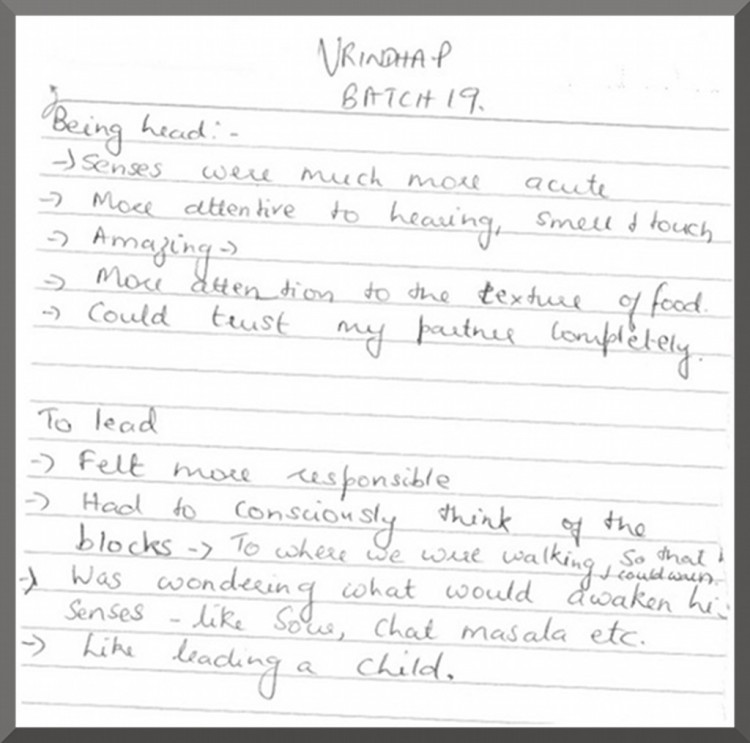 VRINDHA P
BATCH 19.
Being head:-
→ Senses were much more acute
→ More attentive to hearing, smell & touch
→ Amazing →
→ More attention to the texture of food.
→ Could trust my partner completely.
To lead
→ Felt more responsible
→ Had to consciously think of the
blocks → To where we were walking, so that I could warn.
→ Was wondering what would awaken hi
senses - like Sour, Chat masala etc.
→ Like leading a child.